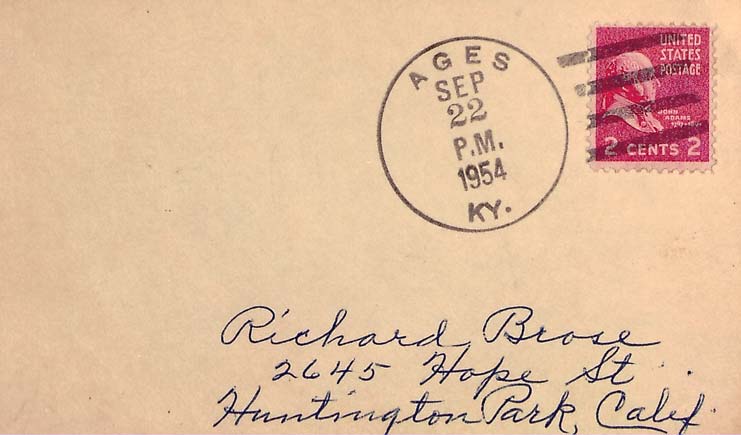 AGES
SEP
22
P.M.
1954
KY.
UNITED
STATES
POSTAGE
JOHN
ADAMS
2 CENTS 2
Richard Brose
2645 Hope St.
Huntington Park, Calif.